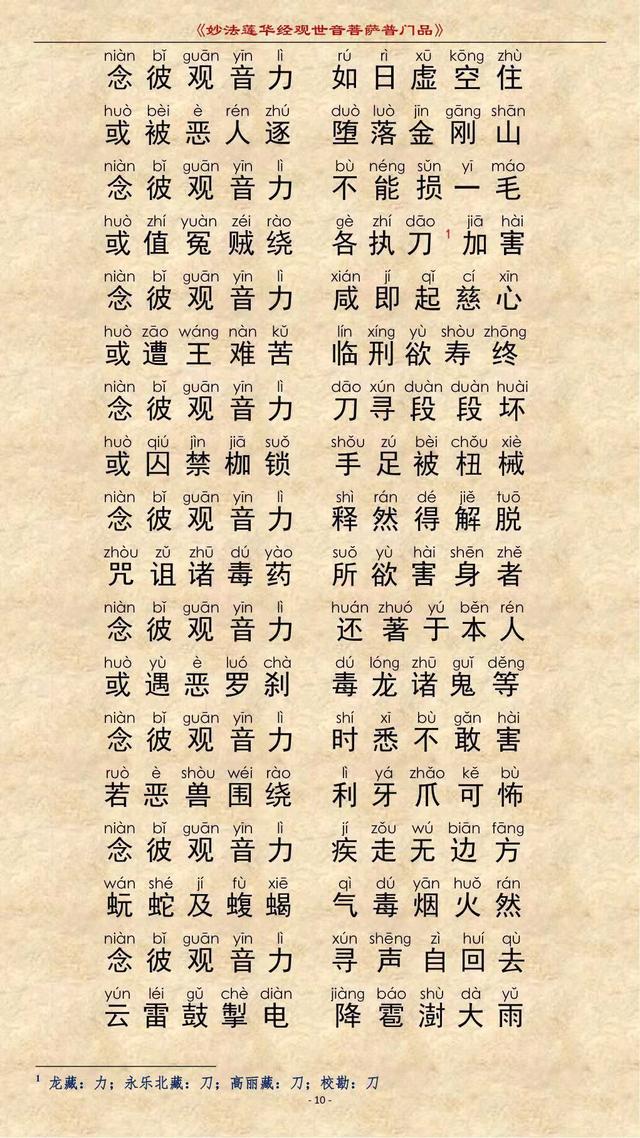 《妙法莲华经观世音菩萨普门品》
niàn bǐ guān yīn lì rú rì xū kōng zhù
念彼观音力 如日虚空住
huò bèi è rén zhú duò luò jīn gāng shān
或被恶人逐 堕落金刚山
niàn bǐ guān yīn lì bù néng sǔn yī máo
念彼观音力 不能损一毛
huò zhí yuàn zéi rào gè zhí dāo jiā hài
或值冤贼绕 各执刀1加害
niàn bǐ guān yīn lì xián jí qǐ cí xīn
念彼观音力 咸即起慈心
huò zāo wáng nàn kǔ lín xíng yù shòu zhōng
或遭王难苦 临刑欲寿终
niàn bǐ guān yīn lì dāo xún duàn duàn huài
念彼观音力 刀寻段段坏
huò qiú jìn jiā suǒ shǒu zú bèi chǒu xiè
或囚禁枷锁 手足被杻械
niàn bǐ guān yīn lì shì rán dé jiě tuō
念彼观音力 释然得解脱
zhòu zǔ zhū dú yào suǒ yù hài shēn zhě
咒诅诸毒药 所欲害身者
niàn bǐ guān yīn lì huán zhuó yú běn rén
念彼观音力 还著于本人
huò yù è luó chà dú lóng zhū guǐ děng
或遇恶罗刹 毒龙诸鬼等
niàn bǐ guān yīn lì shí xī bù gǎn hài
念彼观音力 时悉不敢害
ruò è shòu wéi rào lì yá zhǎo kě bù
若恶兽围绕 利牙爪可怖
niàn bǐ guān yīn lì jí zǒu wú biān fāng
念彼观音力 疾走无边方
wán shé jí fù xiē qì dú yān huǒ rán
蚖蛇及蝮蝎 气毒烟火然
niàn bǐ guān yīn lì xún shēng zì huí qù
念彼观音力 寻声自回去
yún léi gǔ chè diàn jiàng báo shù dà yǔ
云雷鼓掣电 降雹澍大雨
1 龙藏：力；永乐北藏：刀；高丽藏：刀；校勘：刀
- 10 -